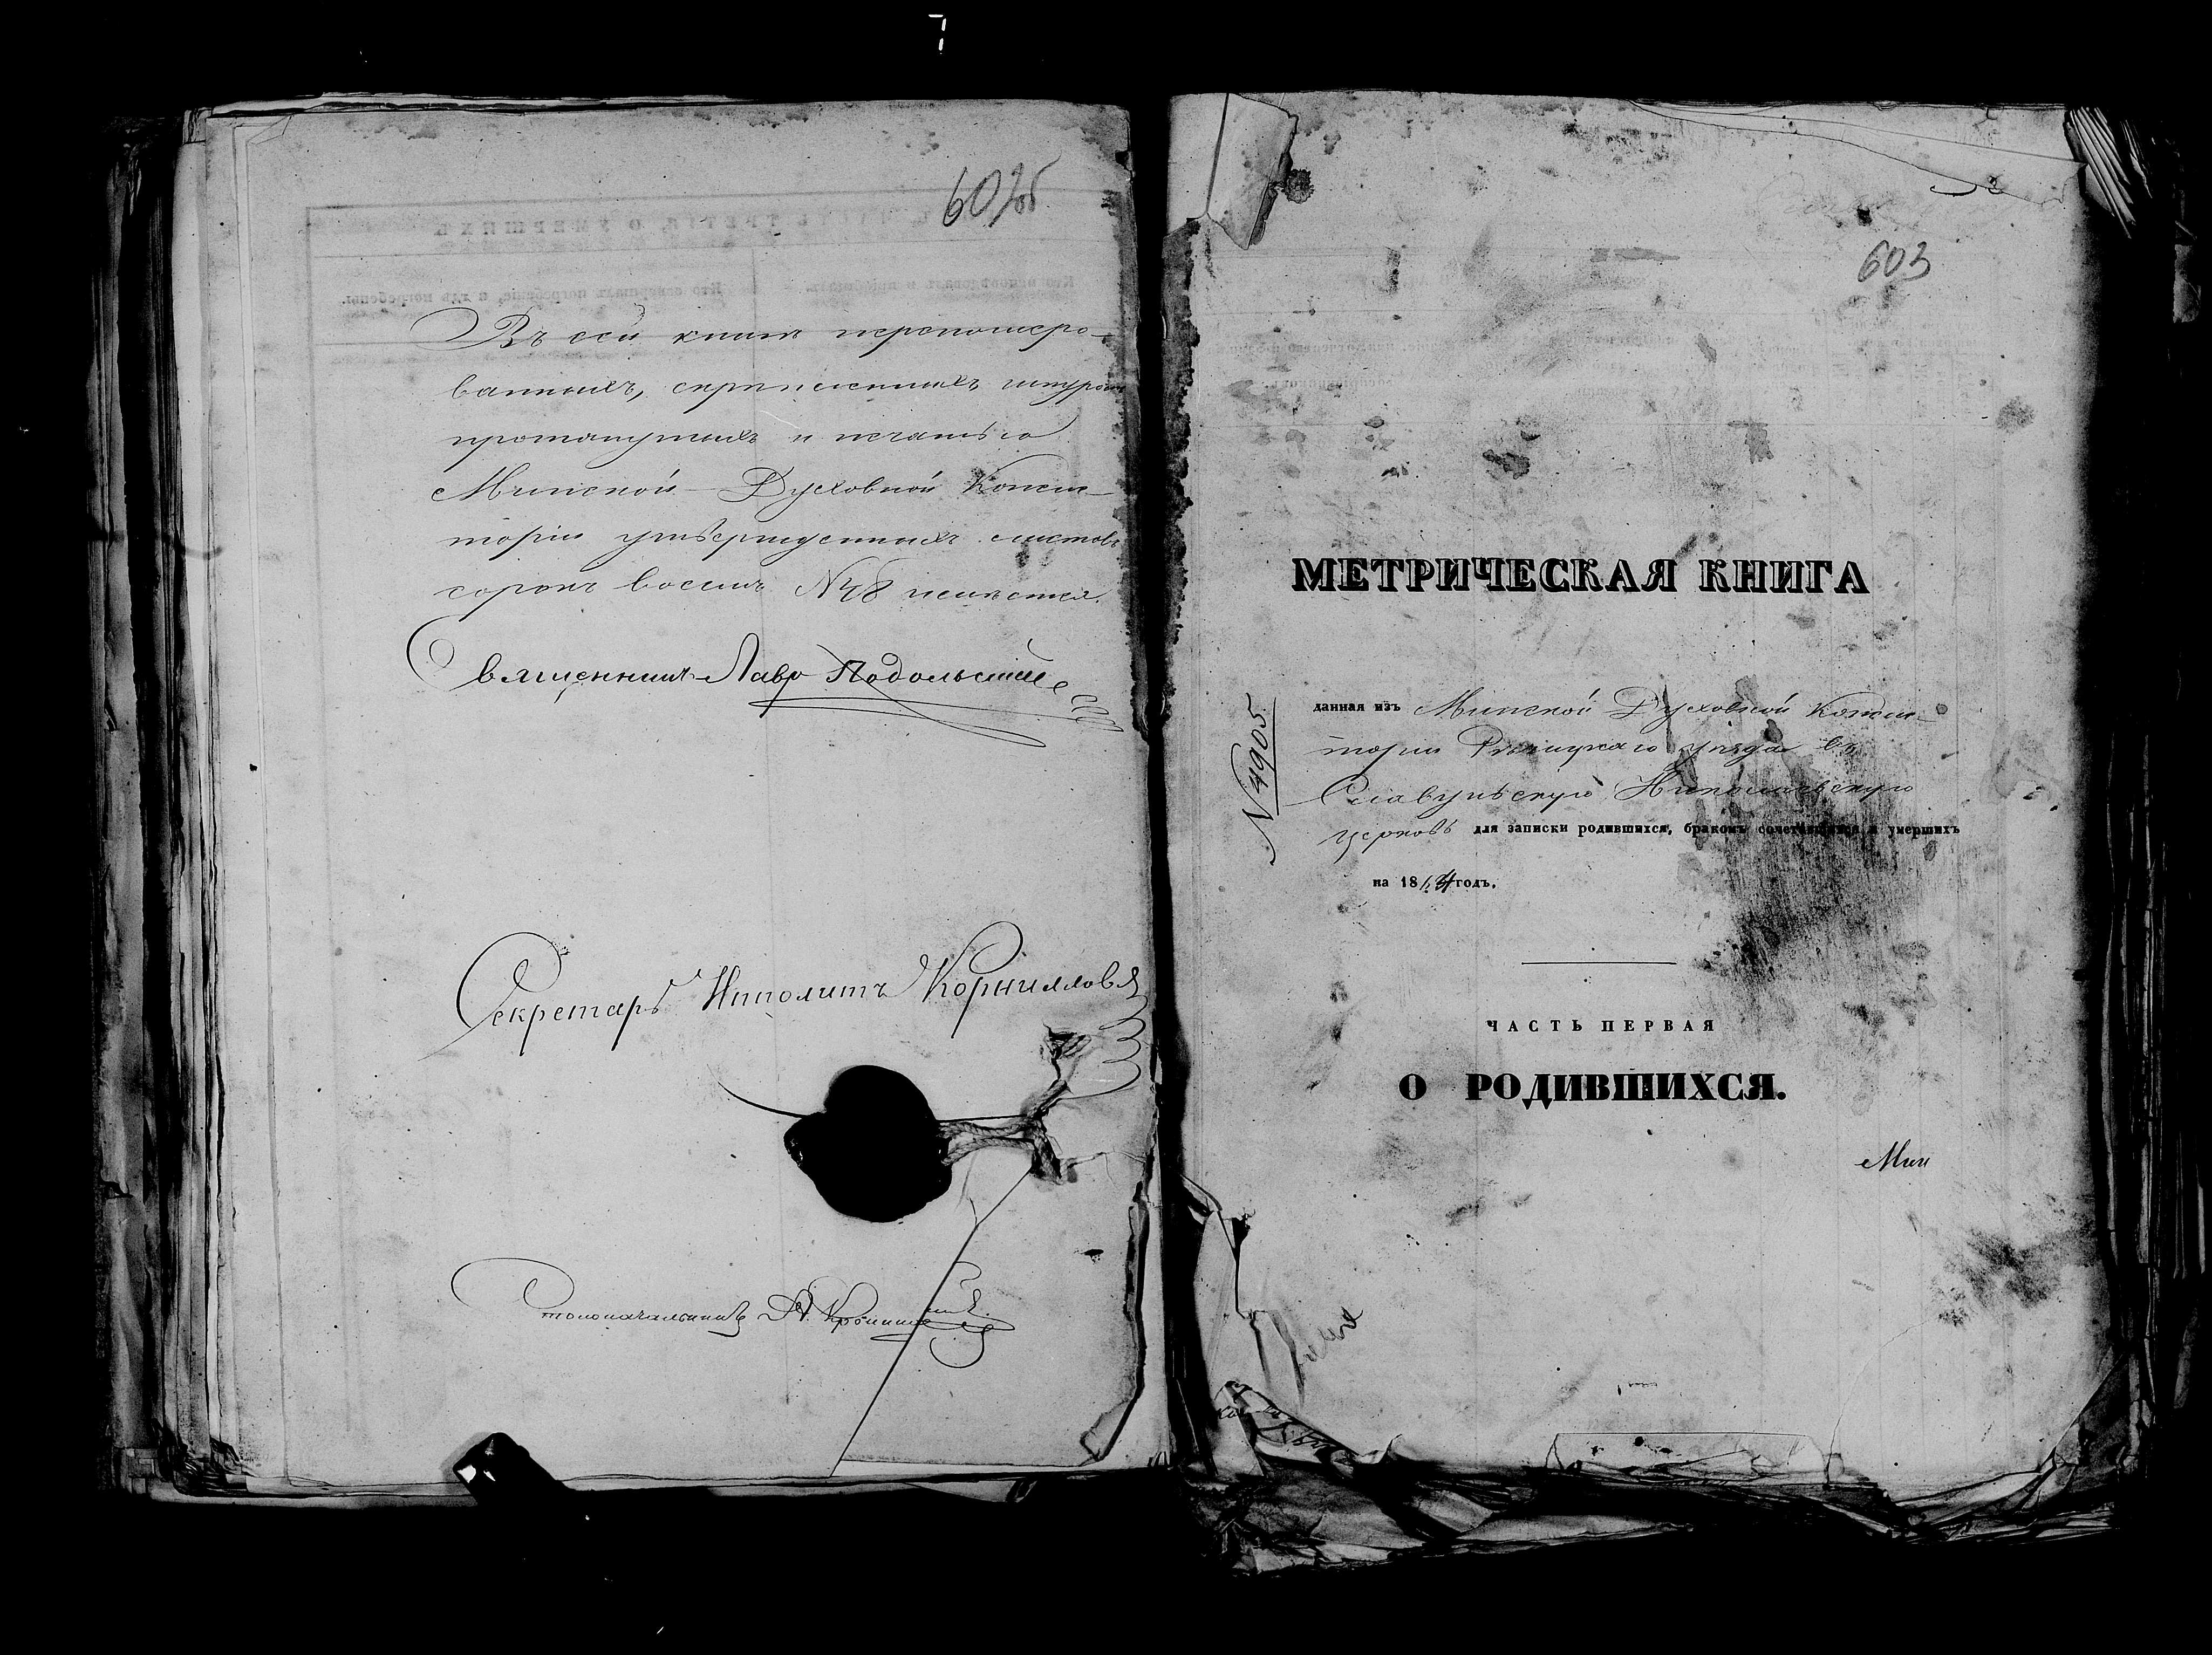 602об
Въ сей книгѣ перенумеро-
ванныхъ, скрѣпленныхъ шнуромъ
протянутыхъ и печатью
Минской Духовной Конси-
торіи утвержденныхъ листовъ
сорокъ восемь №48 имѣется.
Священникъ Лавр Подольскій
Секретарь Ипполитъ Корнилловъ
Столоначальникъ
603
МЕТРИЧЕСКАЯ КНИГА
№4905
данная изъ Минской ДуховнойКонси-
торіи Рѣчицкаго уѣзда въ
Николаевскую
церковь для записки родившихся, бракомъ сочетавшихся и умершихъ
на 18 годъ.
ЧАСТЬ ПЕРВАЯ
О РОДИВШИХСЯ.
Мин